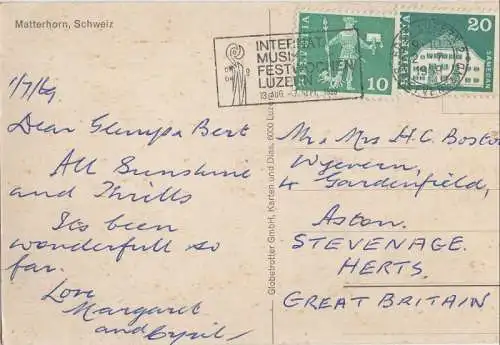 Matterhorn, Schweiz
1/7/69
Dear Glenys & Bert
All Sunshine
and Thrills
Its been
wonderfull so
far.
Love
Margaret
and Cyril
Globetrotter GmbH, Karten und Dias, 6000 Luzern
INTERNAT.
MUSIK
FESTWOCHEN
LUZERN
HELVETIA
10
HELVETIA
20
Mr & Mrs H.C. Boston
Wyevern,
4 Gardenfield,
Aston.
STEVENAGE.
HERTS.
GREAT BRITAIN